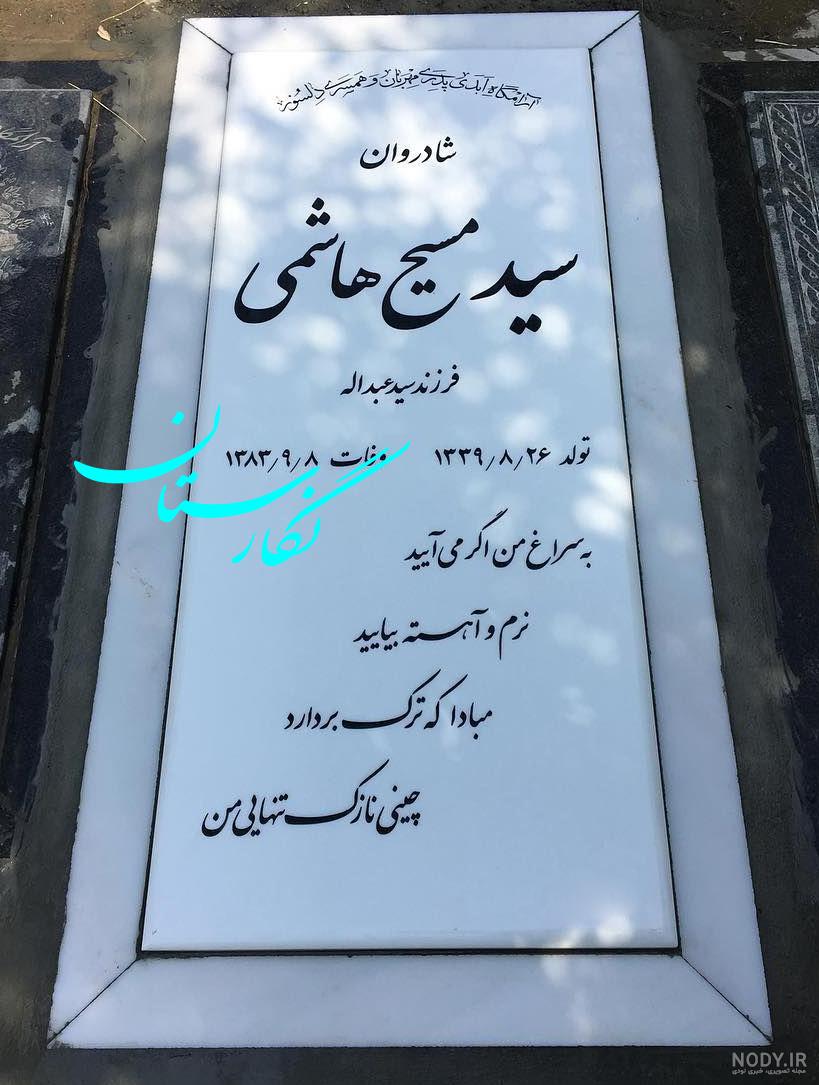 آرامگاه ابدی پدری مهربان و همسری دلسوز
شادروان
سید مسیح هاشمی
فرزند سید عبداله
تولد ۱۳۳۹/۸/۲۶ وفات ۱۳۸۳/۹/۸
نگارستان
به سراغ من اگر می آیید
نرم و آهسته بیایید
مبادا که ترک بردارد
چینی نازک تنهایی من
NODY.IR
مجله تصویری، خبری نودی